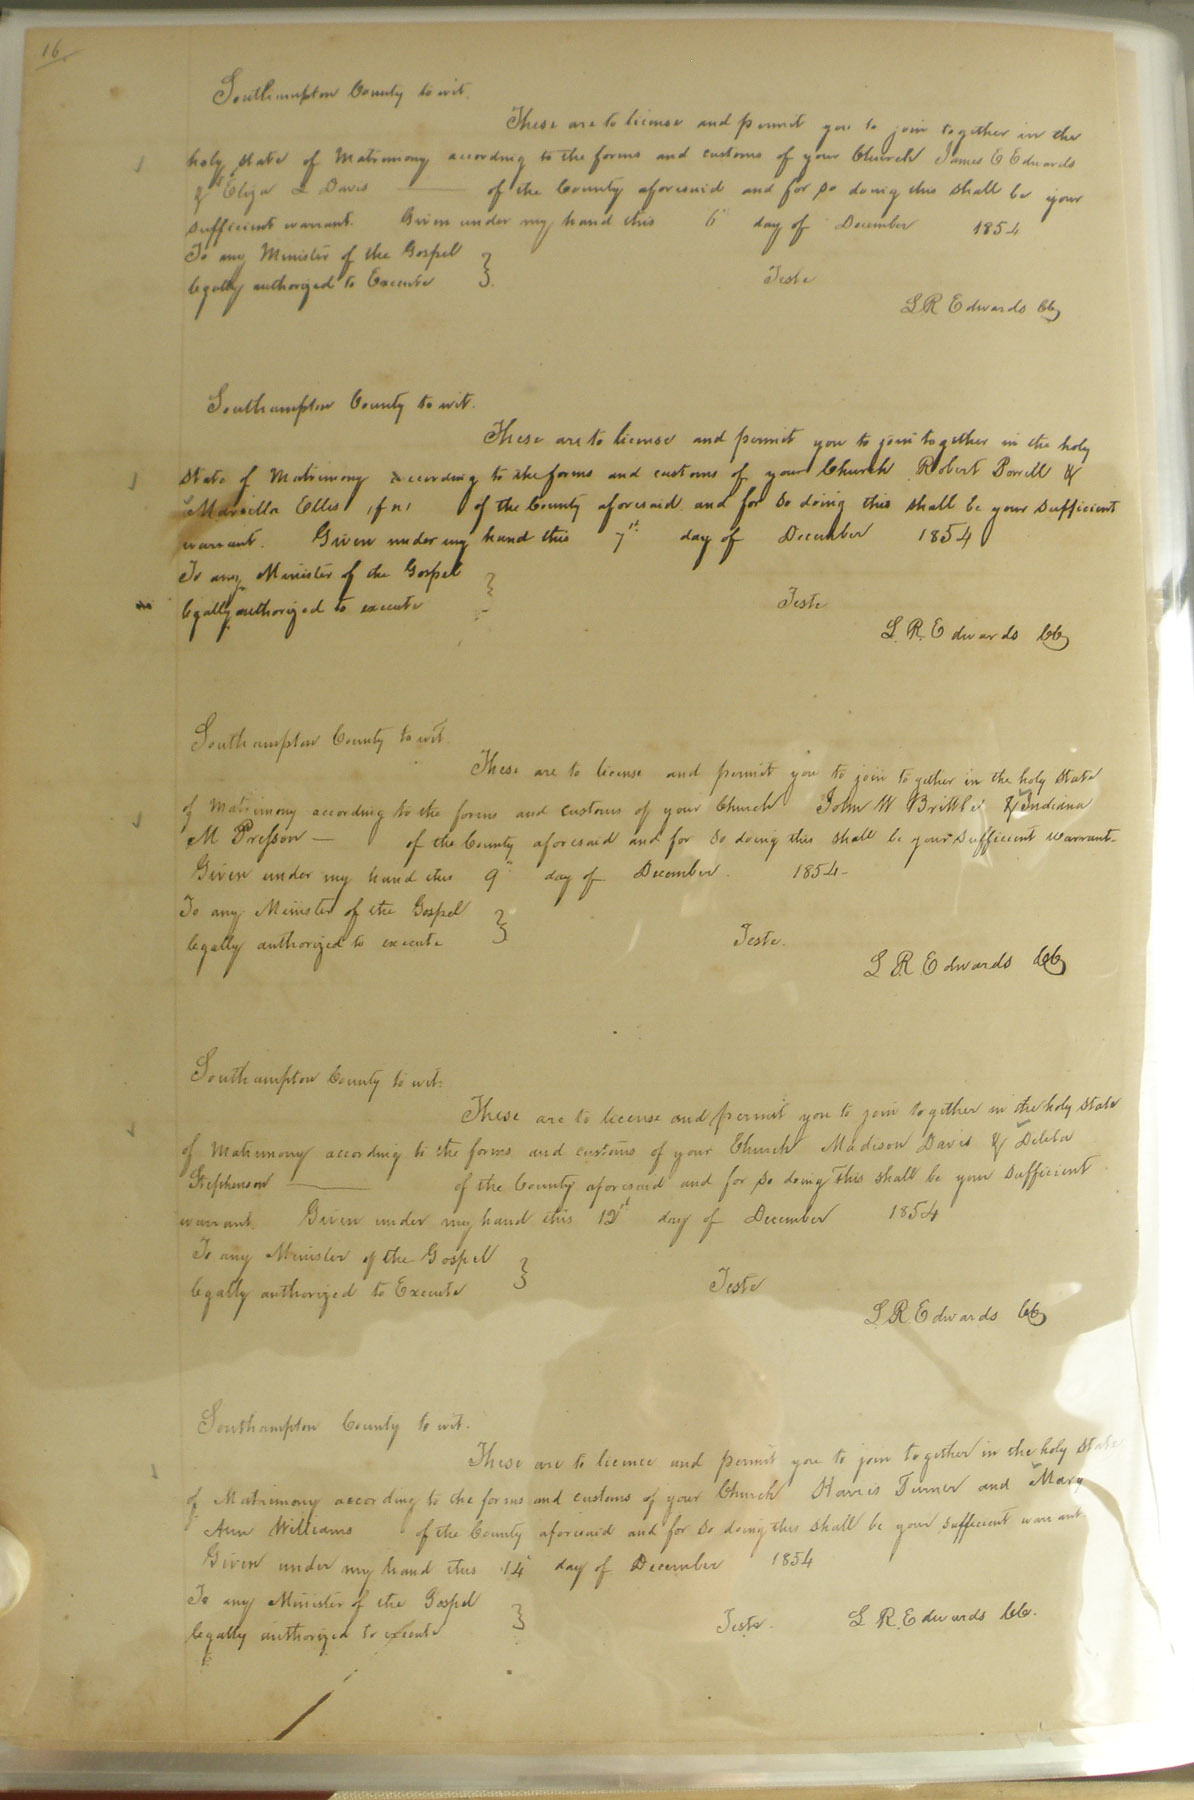 16
Southampton County to wit.
These are to license and permit you to join together in the
holy state of Matrimony according to the forms and customs of your Church James E Edwards
& Eliza L Davis — of the County aforesaid and for so doing this shall be your
sufficient warrant. Given under my hand this 6" day of December 1854
To any Minister of the Gospel
legally authorized to Execute } Teste
L R Edwards CC
Southampton County to wit.
These are to license and permit you to join together in the holy
state of Matrimony according to the forms and customs of your Church Robert Powell &
Marcilla Ellis (fn) of the County aforesaid and for so doing this shall be your sufficient
warrant. Given under my hand this 7th day of December 1854
To any Minister of the Gospel
legally authorized to execute } Teste
L. R. Edwards CC
Southampton County to wit.
These are to license and permit you to join together in the holy state
of Matrimony according to the forms and customs of your Church John W Brittle & Indiana
M Presson — of the County aforesaid and for so doing this shall be your sufficient warrant.
Given under my hand this 9" day of December 1854-
To any Minister of the Gospel
legally authorized to execute } Teste.
L R Edwards CC
Southampton County to wit.
These are to license and permit you to join together in the holy state
of Matrimony according to the forms and customs of your Church Madison Davis &
Stephenson — of the County aforesaid and for so doing this shall be your sufficient
warrant. Given under my hand this 12th day of December 1854
To any Minister of the Gospel
legally authorized to Execute } Teste
L. R. Edwards CC
Southampton County to wit.
These are to licence and permit you to join together in the holy state
of Matrimony according to the forms and customs of your Church Harris Turner and Mary
Ann Williams of the County aforesaid and for so doing this shall be your sufficient warrant.
Given under my hand this 14" day of December 1854
To any Minister of the Gospel
legally authorized to execute } Teste. L R. Edwards CC.